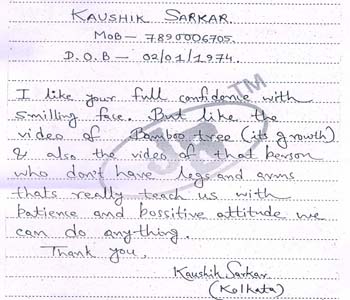 KAUSHIK SARKAR.
MOB- 7890006705.
D.O.B - 02/01/1974.
I like your full confidence with
smilling face. But like the
video of Bamboo tree (its growth)
& also the video of that person
who don't have legs and arms
thats really teach us with
patience and possitive attitude we
can do anything.
Thank you,
Kaushik Sarkar
(Kolkata)
JR TM